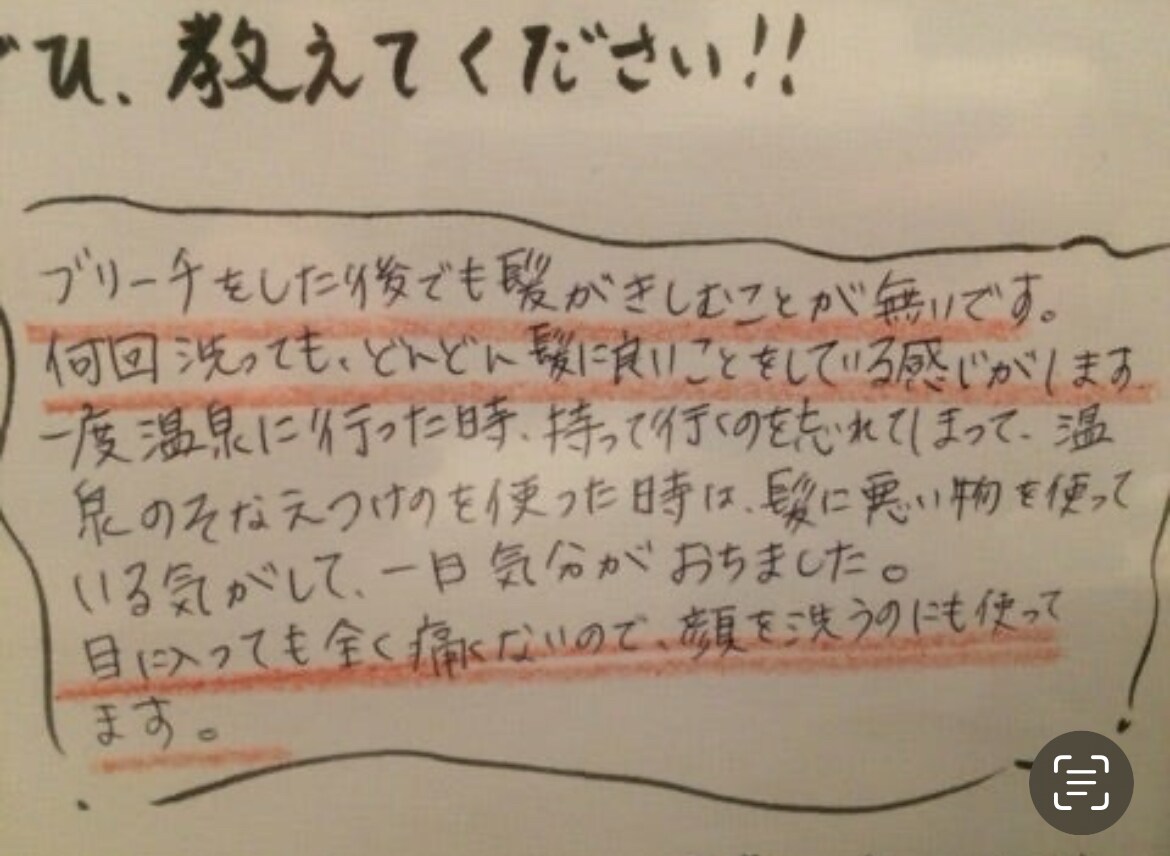 ひ、教えてください!!
ブリーチをした後でも髪がきしむことが無いです。
何回洗っても、どんどん髪に良いことをしている感じがします
一度温泉に行った時、持って行くのを忘れてしまって、温
泉のそなえつけのを使った時は、髪に悪い物を使って
いる気がして、一日気分がおちました。
目に入っても全く痛くないので、顔を洗うのにも使って
ます。